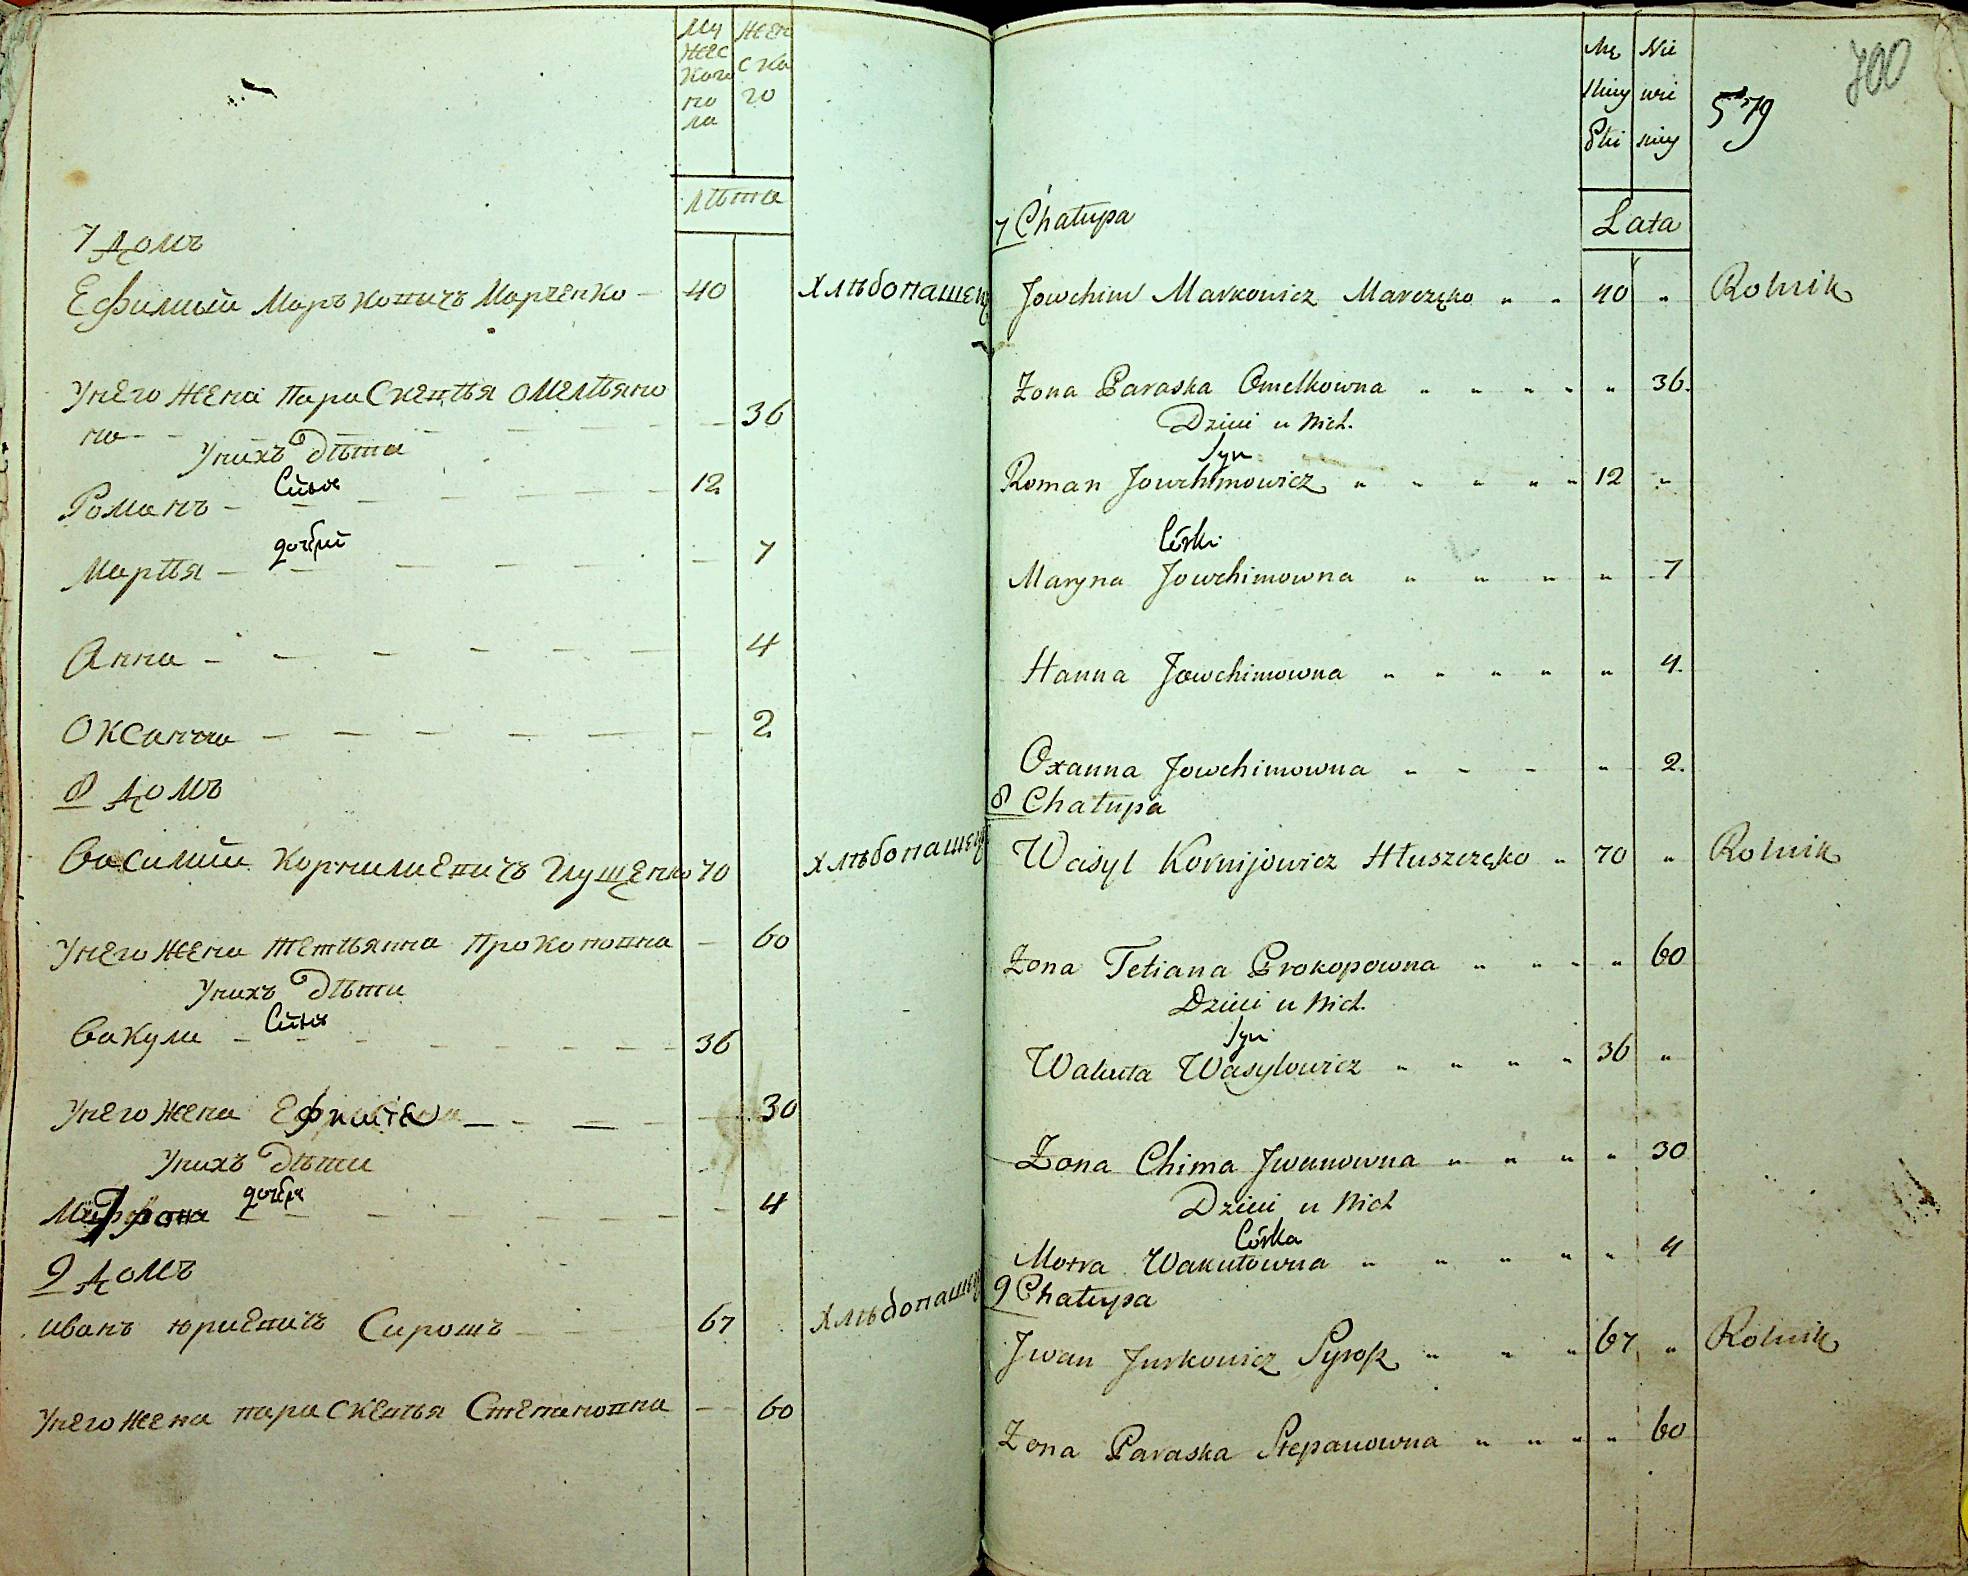 Му
жес
каго
по
ла
жен
ска
го
лѣта
7 домъ
Ефимий Марковичъ Марченко - 40 хлѣбопашец
У него жена Параскевья Омельяно
на - - 36
У нихъ дѣти
сынъ
Романъ - 12
дочери
Марья - 7
Анна - 4
Оксанна - 2
8 домъ
Василий Корнилиевичъ Глущенко 70 хлѣбопашец
У него жена Тетьянна Прокоповна - 60
У нихъ дѣти
сынъ
Вакула - 36
У него жена - 30
У нихъ дѣти
дочь
- 4
9 домъ
Иванъ Юриевичъ Сирошъ 67 хлѣбопашец
У него жена Параскевья Степановна - 60
700
579
Mę
skiey
Płci
Nie
wie
sciey
Lata
7 Chałupa
Jowchim Markowicz Marczęko " " 40 " Rolnik
Żona Paraska Omelkowna " " " " " 36.
Dzieci u Nich.
Syn
Roman Jowchimowicz " " " " " 12 "
Córki
Maryna Jowchimowna " " " " 7
Hanna Jowchimowna " " " " " 4.
Oxanna Jowchimowna " " " " 2.
8 Chałupa
Wasyl Kornijowicz Hłuszczęko " 70 " Rolnik
Żona Tetiana Prokopowna " " " " 60
Dzieci u Nich.
Syn
Wakuła Wasylowicz " " " " 36 "
Żona Chima Jwanowna " " " " 30
Dzieci u Nich
Córka
Motra Wakułowna " " " " " 4
9 Chałupa
Jwan Jurkowicz Syrosz " " " 67 " Rolnik
Żona Paraska Stepanowna " " " " 60